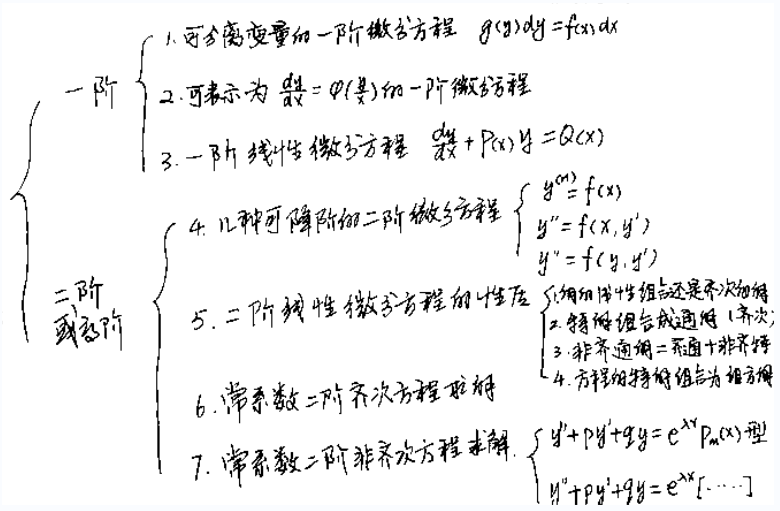 一阶
1. 可分离变量的一阶微分方程 g(y)dy=f(x)dx
2. 可表示为 dy/dx = φ(y/x) 的一阶微分方程
3. 一阶线性微分方程 dy/dx + P(x)y = Q(x)
二阶
或高阶
4. 几种可降阶的二阶微分方程
y⁽ⁿ⁾=f(x)
y''=f(x,y')
y''=f(y,y')
5. 二阶线性微分方程的性质
1. 解的线性组合还是齐次的解
2. 特解组合成通解(齐次)
3. 非齐通解=齐通+非齐特
4. 方程的特解组合为组方解
6. 常系数二阶齐次方程求解
7. 常系数二阶非齐次方程求解.
y''+py'+qy=e^λx Pm(x)型
y''+py'+qy=e^λx[.....]